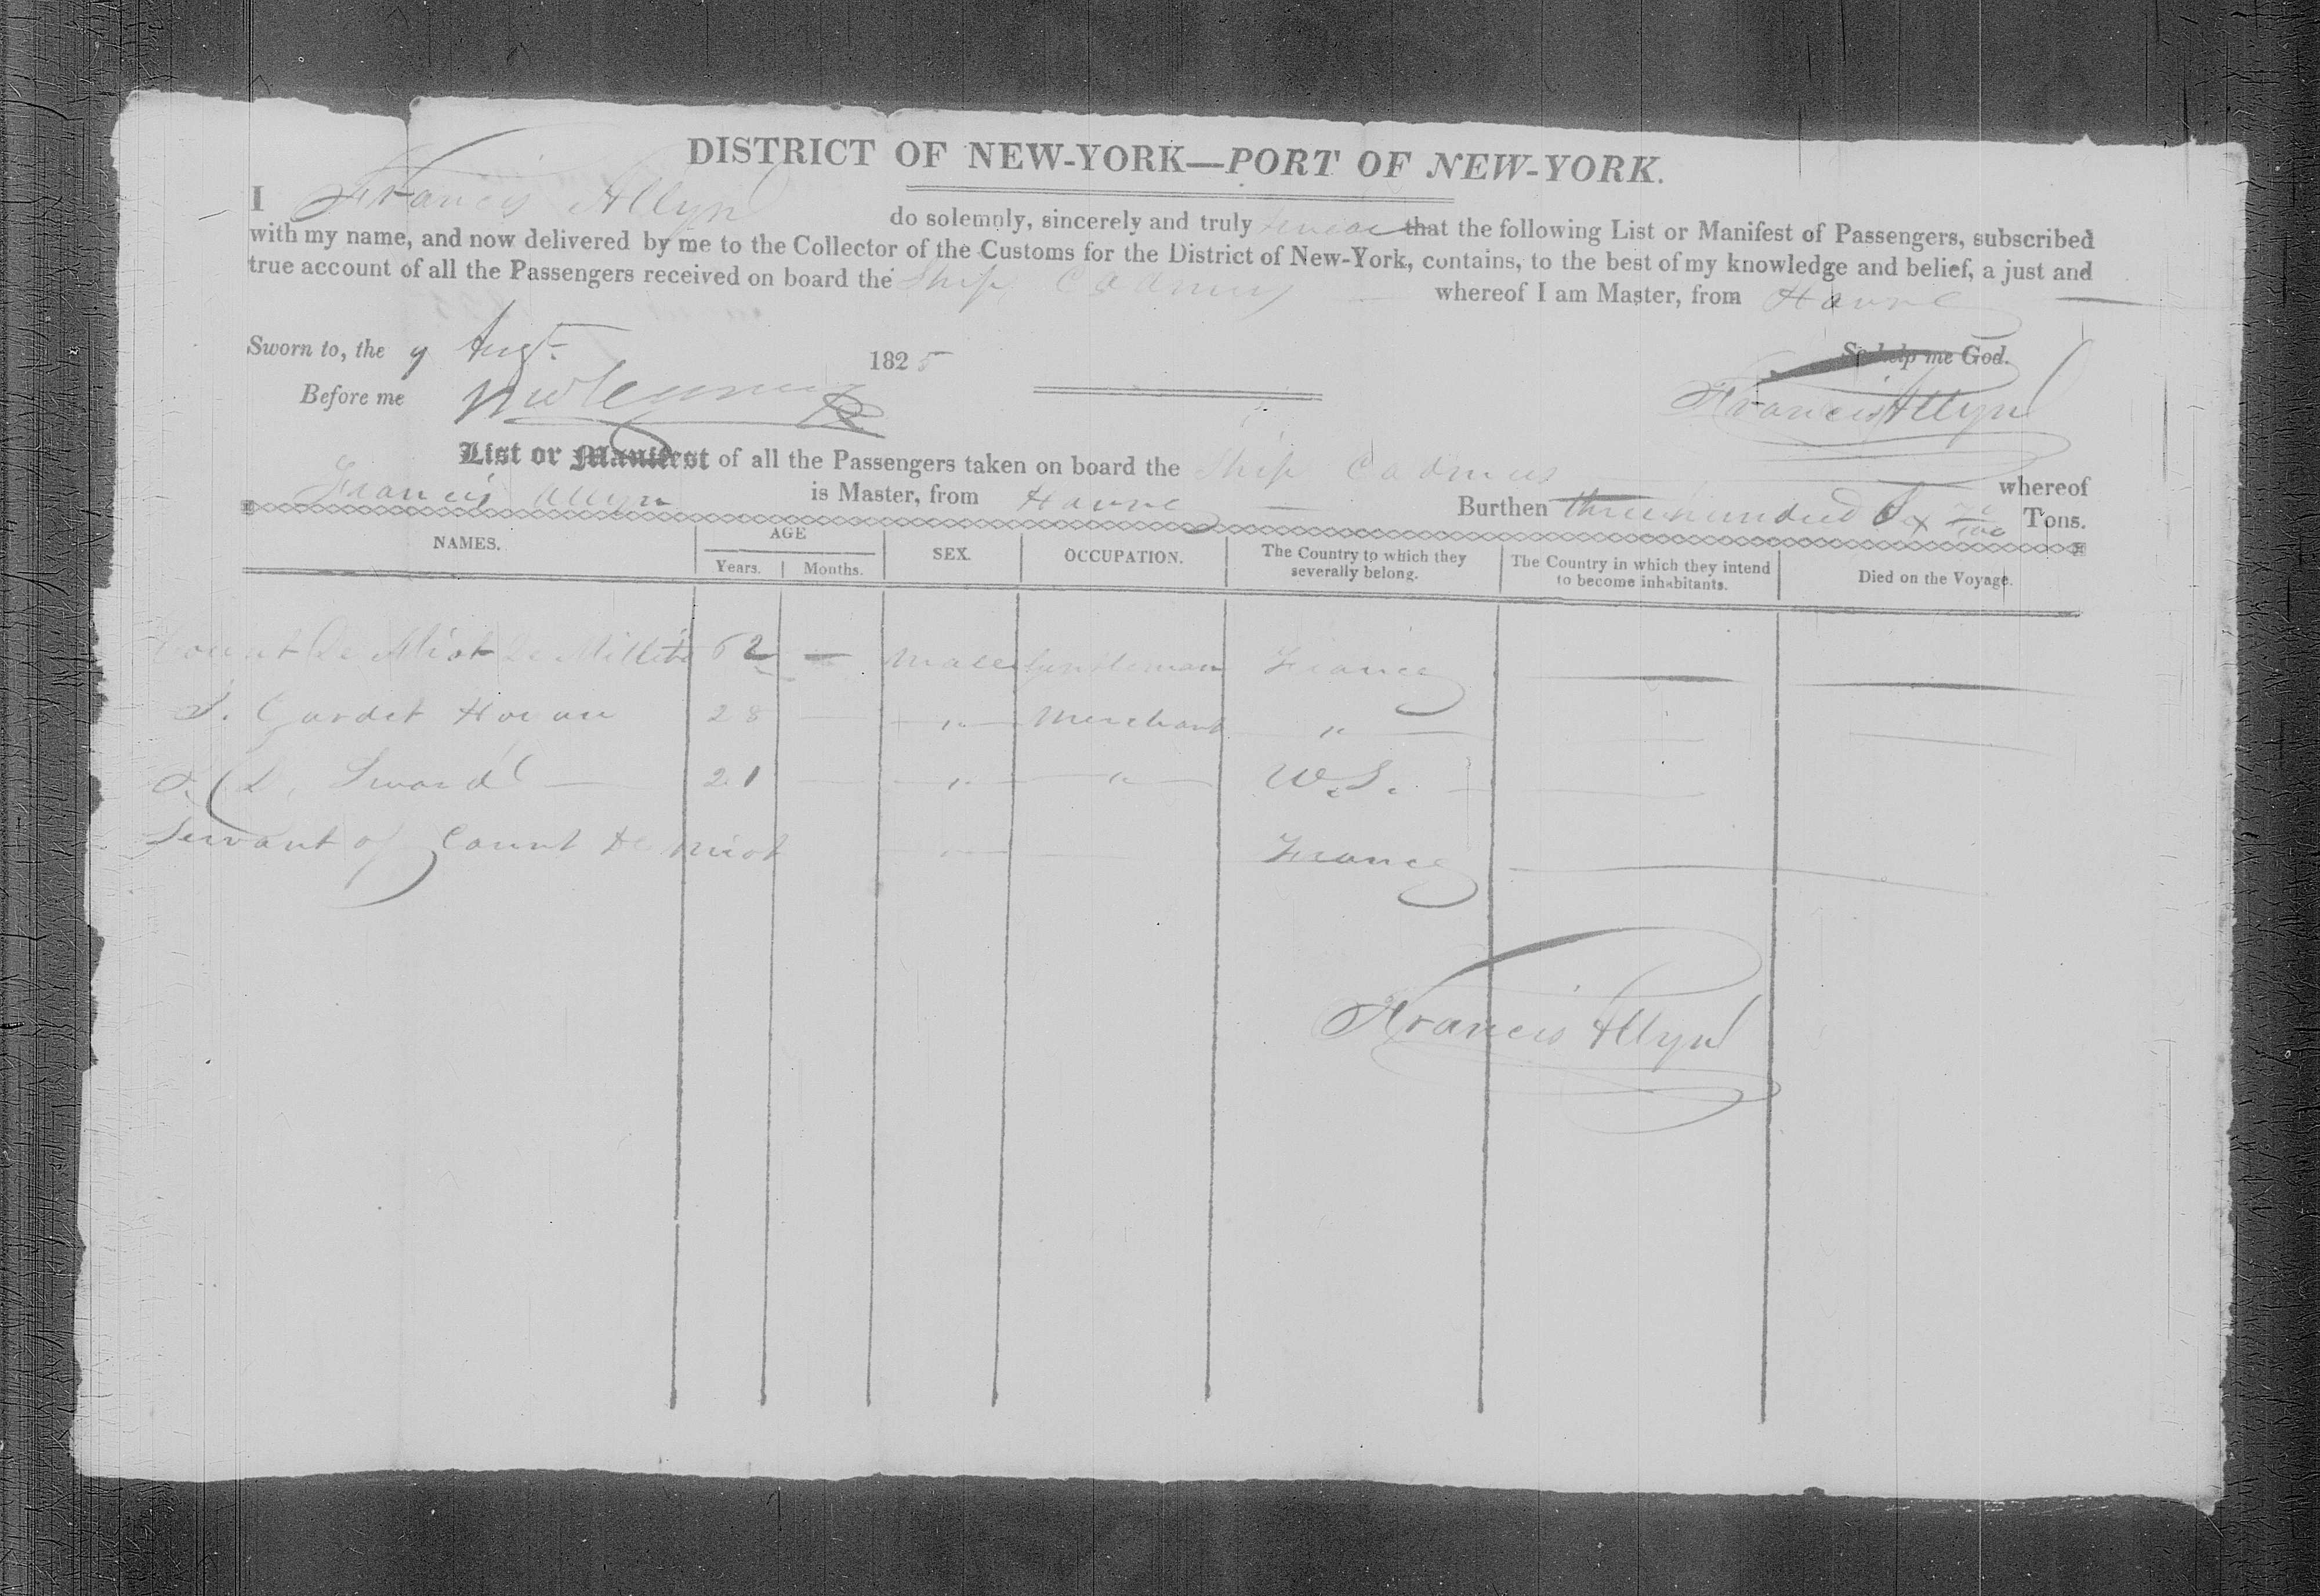 DISTRICT OF NEW-YORK—PORT OF NEW-YORK.
I Francis Allyn do solemnly, sincerely and truly swear that the following List or Manifest of Passengers, subscribed
with my name, and now delivered by me to the Collector of the Customs for the District of New-York, contains, to the best of my knowledge and belief, a just and
true account of all the Passengers received on board the Ship Cadmus whereof I am Master, from Havre
Sworn to, the 9 Augt. 1825 So help me God.
Before me Francis Allyn
List or Manifest of all the Passengers taken on board the Ship Cadmus whereof
Francis Allyn is Master, from Havre Burthen three hundred Six Tons.
NAMES. AGE SEX. OCCUPATION. The Country to which they severally belong. The Country in which they intend to become inhabitants. Died on the Voyage.
Years. Months.
Count De Miot De Mellito 62 — Male Gentleman France — —
Gardet 28 — " Merchant " — —
L. Sword — 21 — " " U.S. — —
Servant of Count De Miot " — France —
Francis Allyn